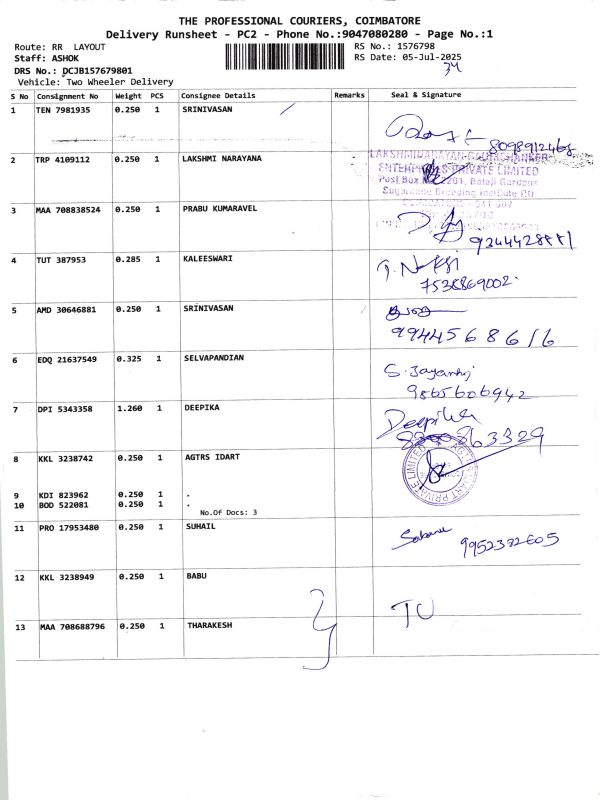 THE PROFESSIONAL COURIERS, COIMBATORE
Delivery Runsheet - PC2 - Phone No.:9047080280 - Page No.:1
Route: RR LAYOUT
RS No.: 1576798
Staff: ASHOK
RS Date: 05-Jul-2025
DRS No.: DCJB157679801
Vehicle: Two Wheeler Delivery
S No Consignment No Weight PCS Consignee Details Remarks Seal & Signature
1 TEN 7981935 0.250 1 SRINIVASAN
8098912468
2 TRP 4109112 0.250 1 LAKSHMI NARAYANA
ENTERPRISES PRIVATE LIMITED
Post Box 2201, Balaji Gardens
Sugarcane Breeding Institute P.O
3 MAA 708838524 0.250 1 PRABU KUMARAVEL
4 TUT 387953 0.285 1 KALEESWARI
7538869002
5 AMD 30646881 0.250 1 SRINIVASAN
9944568616
6 EDQ 21637549 0.325 1 SELVAPANDIAN
S. Jayanthi
9865606942
7 DPI 5343358 1.260 1 DEEPIKA
Deepika
863329
8 KKL 3238742 0.250 1 AGTRS IDART
PRIVATE LIMITED
9 KDI 823962 0.250 1 .
10 BOD 522081 0.250 1 .
No.Of Docs: 3
11 PRO 17953480 0.250 1 SUHAIL
9952372605
12 KKL 3238949 0.250 1 BABU
13 MAA 708688796 0.250 1 THARAKESH